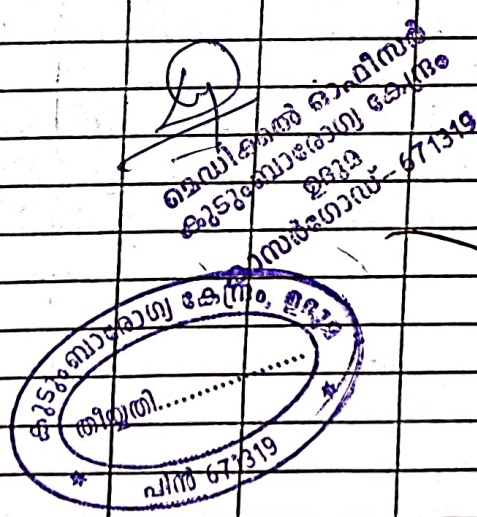 മെഡിക്കൽ ഓഫീസർ
കുടുംബാരോഗ്യ കേന്ദ്രം
ഉദുമ
കാസർഗോഡ് - 671319
കുടുംബാരോഗ്യ കേന്ദ്രം, ഉദുമ
തീയ്യതി....................
പിൻ 671319